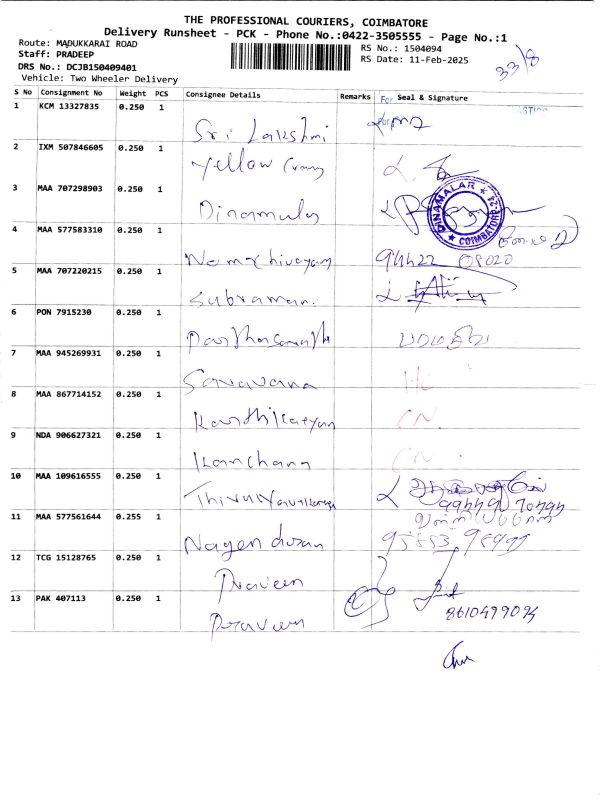 THE PROFESSIONAL COURIERS, COIMBATORE
Delivery Runsheet - PCK - Phone No.:0422-3505555 - Page No.:1
Route: MADUKKARAI ROAD
Staff: PRADEEP
DRS No.: DCJB150409401
Vehicle: Two Wheeler Delivery
RS No.: 1504094
RS Date: 11-Feb-2025
33/8
S No Consignment No Weight PCS Consignee Details Remarks For Seal & Signature
1 KCM 13327835 0.250 1 Sri Lakshmi
2 IXM 507846605 0.250 1 Yellow
3 MAA 707298903 0.250 1 Dinamalar DINAMALAR COIMBATORE
4 MAA 577583310 0.250 1 Namachivayam 94422 08020
5 MAA 707220215 0.250 1 Subramani
6 PON 7915230 0.250 1 Parthasarathi
7 MAA 945269931 0.250 1 Saravana
8 MAA 867714152 0.250 1 Karthikeyan CN
9 NDA 906627321 0.250 1 Kanchana CN
10 MAA 109616555 0.250 1
11 MAA 577561644 0.255 1 Nagendran
12 TCG 15128765 0.250 1 Praveen
13 PAK 407113 0.250 1 Praveen